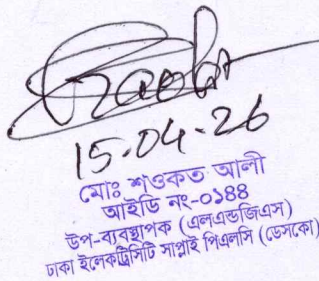 15-04-26
মোঃ শওকত আলী
আইডি নং-০১৪৪
উপ-ব্যবস্থাপক (এলএন্ডজিএস)
ঢাকা ইলেকট্রিসিটি সাপ্লাই পিএলসি (ডেসকো)